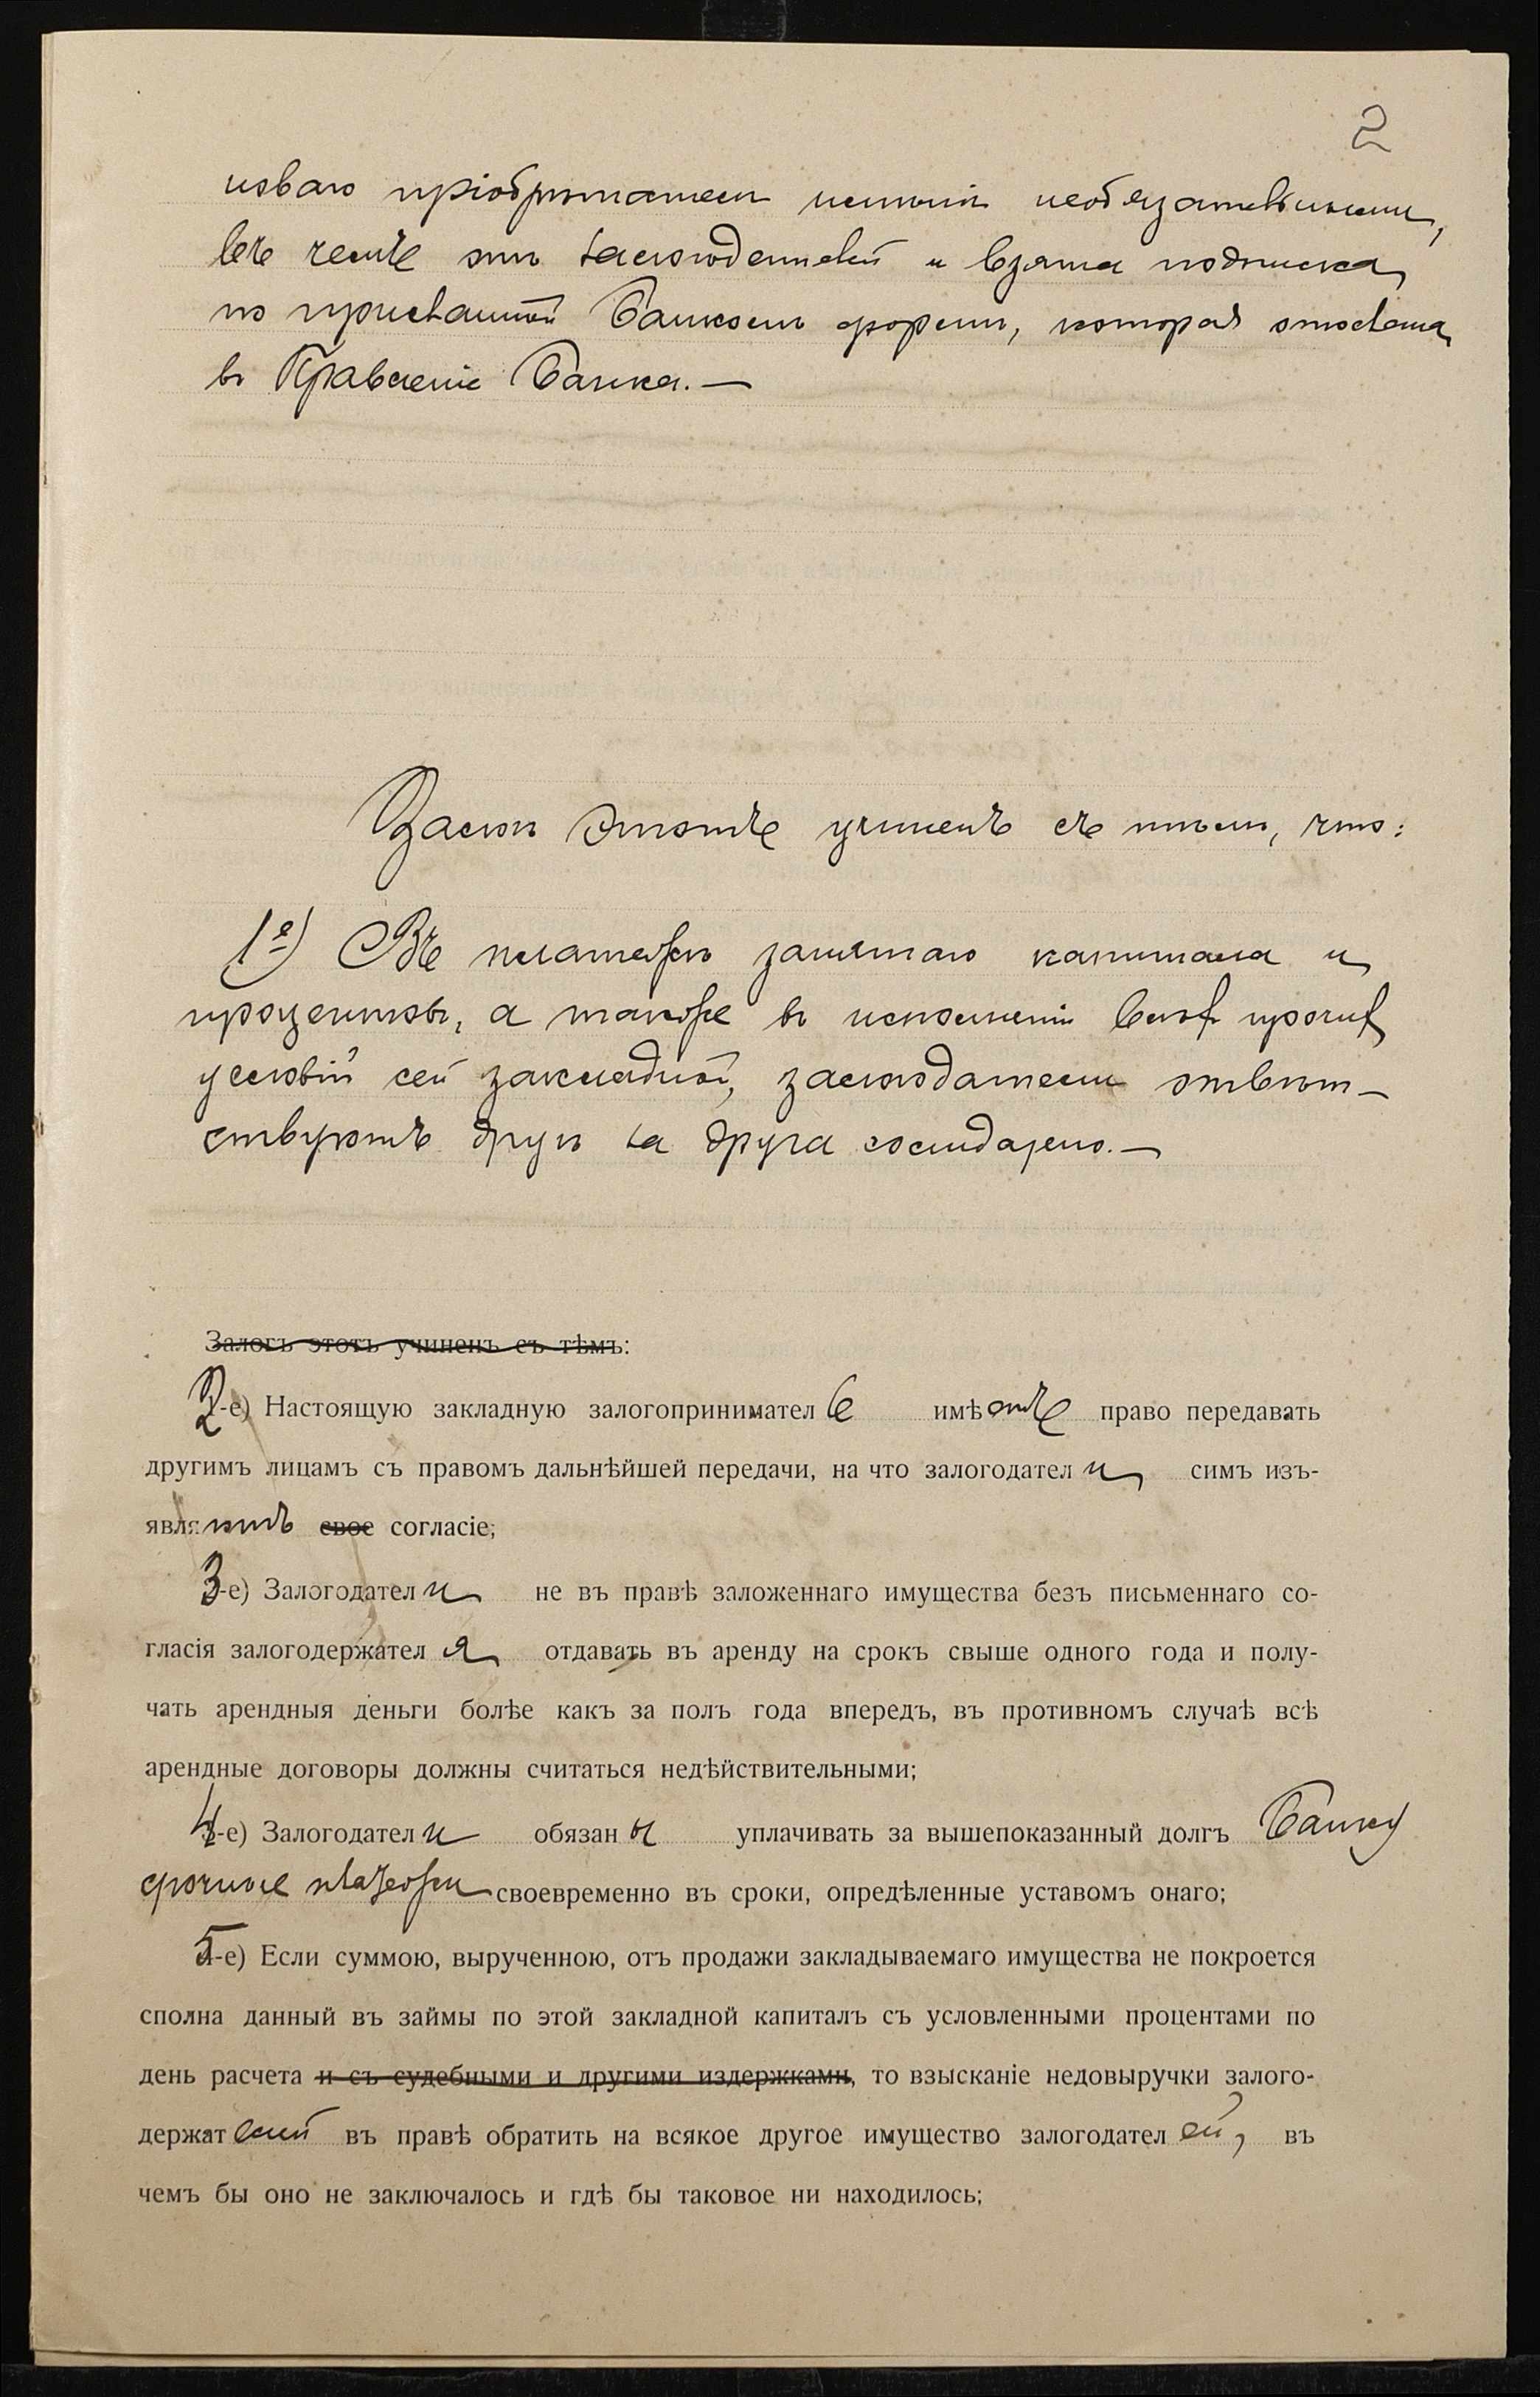 2
новаго пріобрѣтателя имѣнія необязательными,
въ чемъ отъ залогодателей и взята подписка,
по присланной Банкомъ формѣ, которая отослана
въ Правленіе Банка.—
Залогъ этотъ учиненъ съ тѣмъ, что:
1е) Въ платежѣ занятаго капитала и
процентовъ, а также въ исполненіи всѣхъ прочихъ
условій сей закладной, залогодатели отвѣт-
ствуютъ другъ за друга солидарно.—
Залогъ этотъ учиненъ съ тѣмъ:
2-е) Настоящую закладную залогоприниматель имѣетъ право передавать
другимъ лицамъ съ правомъ дальнѣйшей передачи, на что залогодатели симъ изъ-
являютъ свое согласіе;
3-е) Залогодатели не въ правѣ заложеннаго имущества безъ письменнаго со-
гласія залогодержателя отдавать въ аренду на срокъ свыше одного года и полу-
чать арендныя деньги болѣе какъ за полъ года впередъ, въ противномъ случаѣ всѣ
арендные договоры должны считаться недѣйствительными;
4-е) Залогодатели обязаны уплачивать за вышепоказанный долгъ Банку
срочные платежи своевременно въ сроки, опредѣленные уставомъ онаго;
5-е) Если суммою, вырученною, отъ продажи закладываемаго имущества не покроется
сполна данный въ займы по этой закладной капиталъ съ условленными процентами по
день расчета и съ судебными и другими издержками, то взысканіе недовыручки залого-
держат въ правѣ обратить на всякое другое имущество залогодателей, въ
чемъ бы оно не заключалось и гдѣ бы таковое ни находилось;